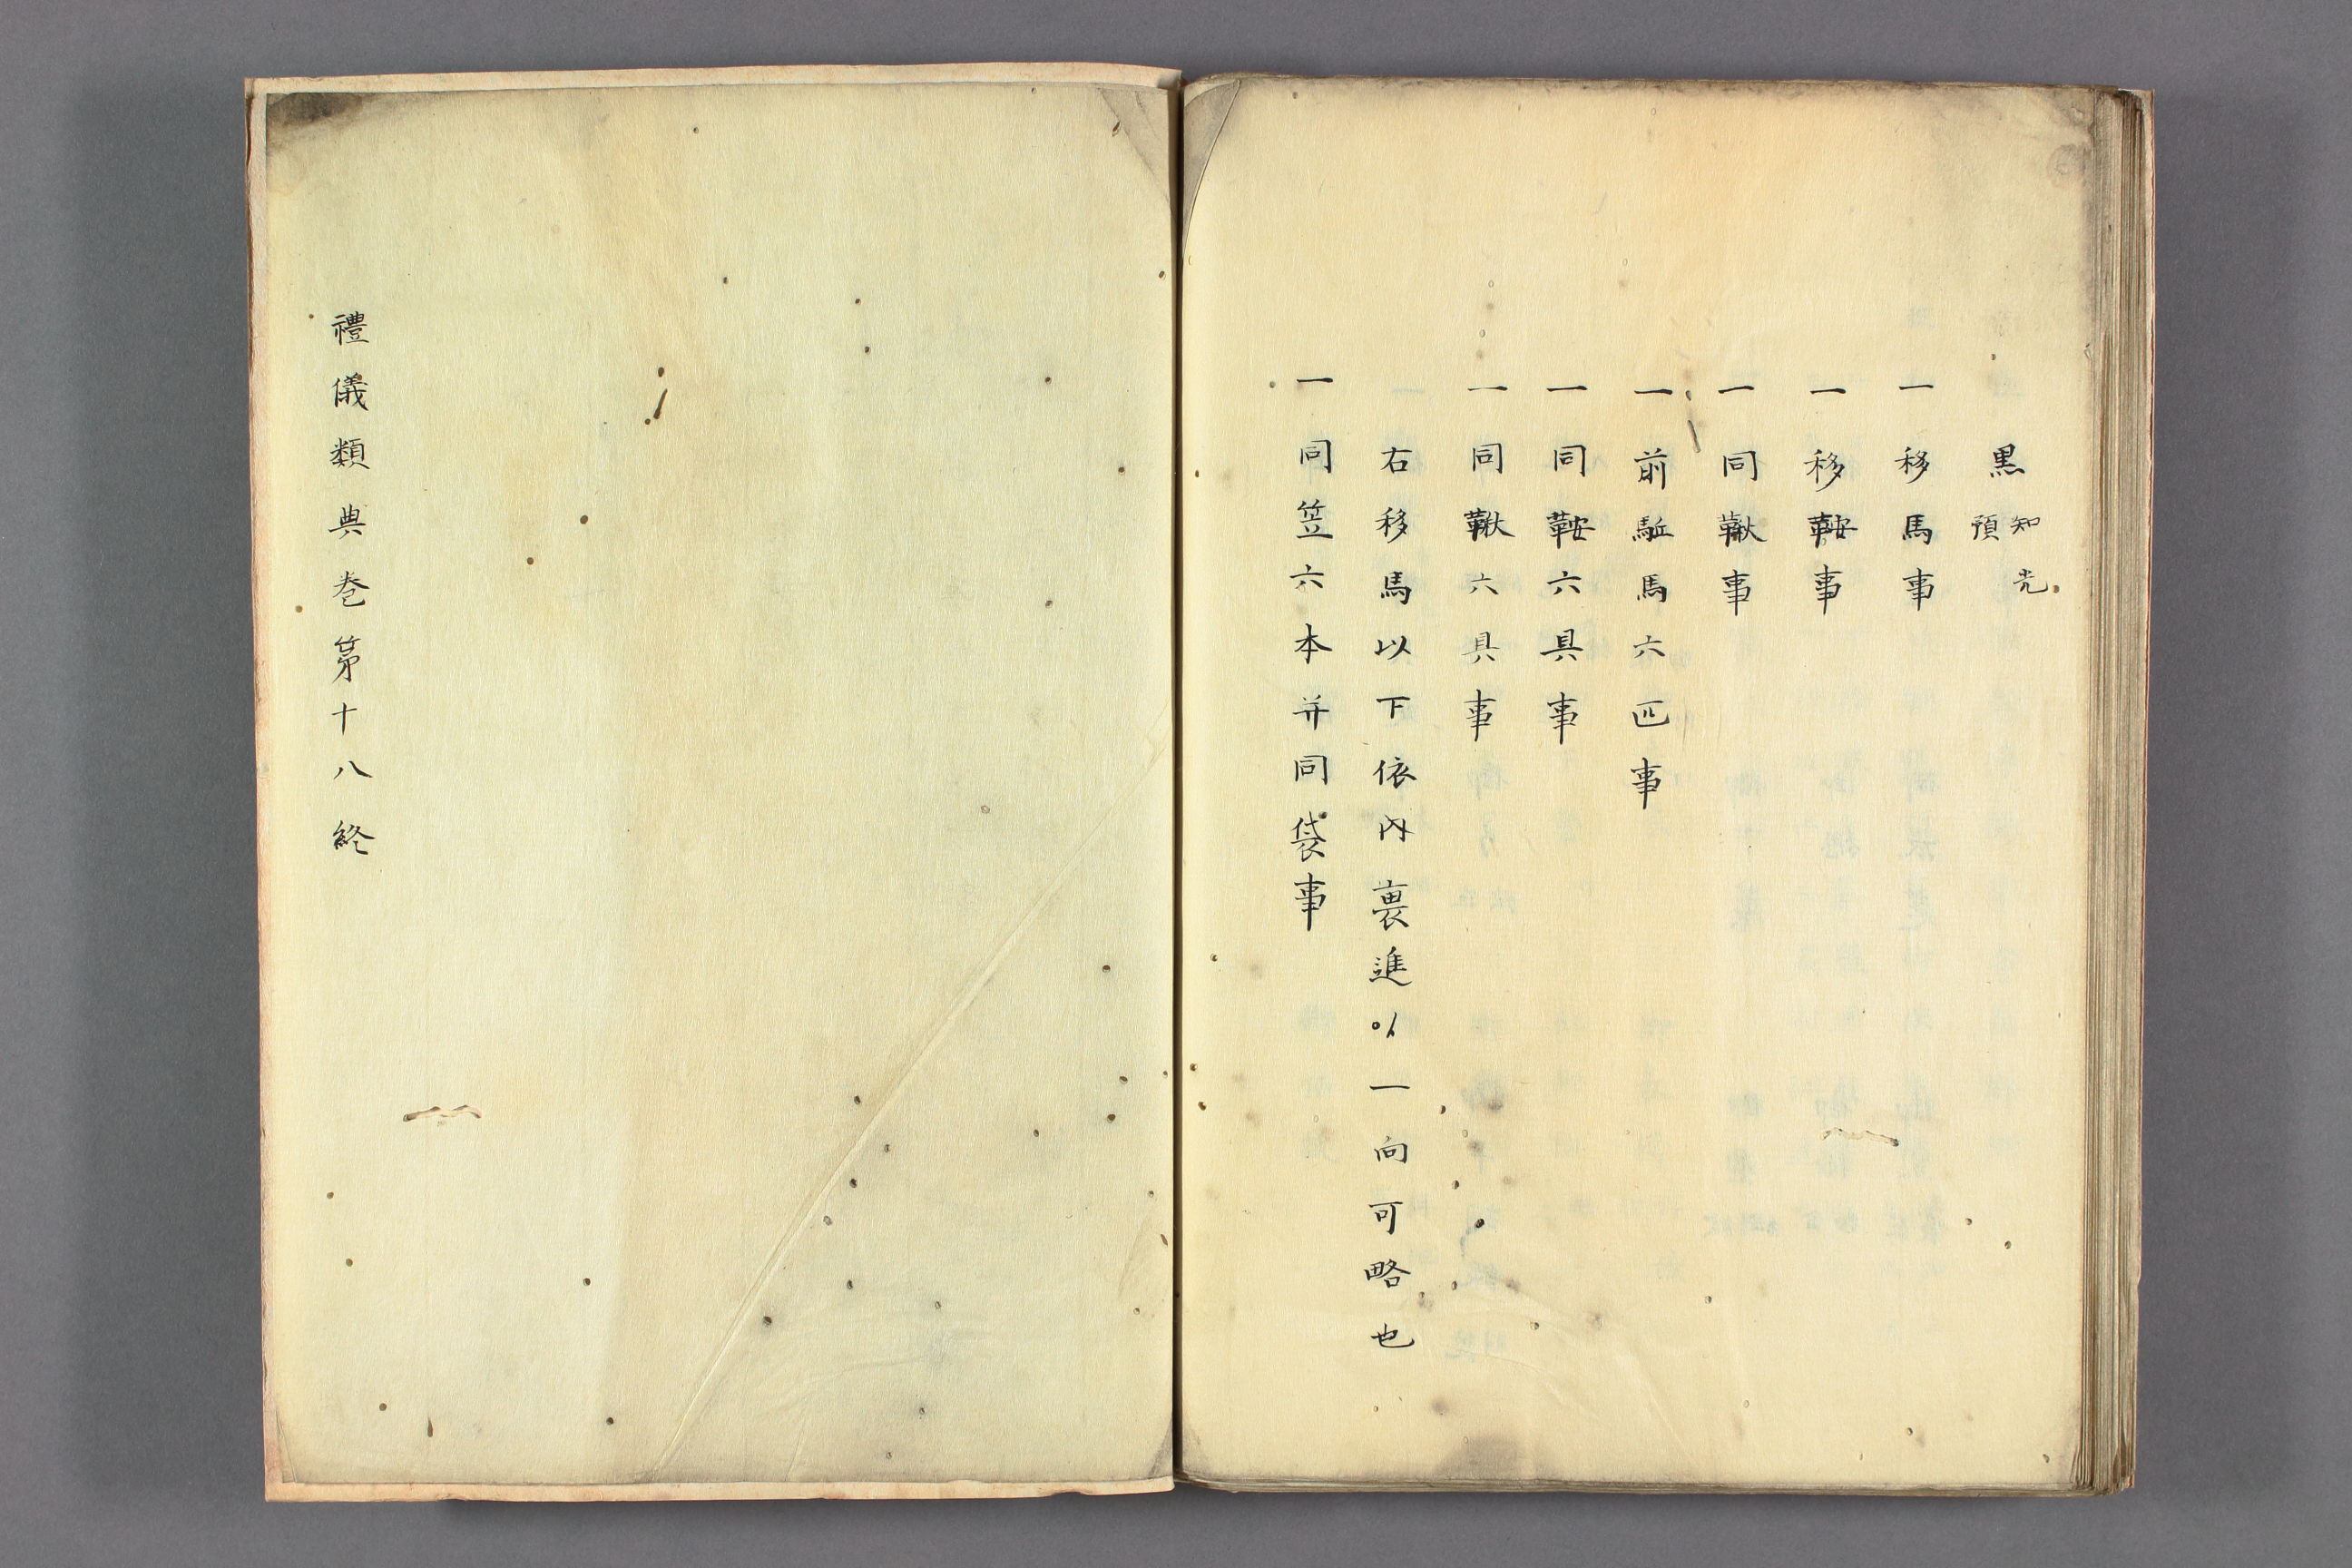 黒 知光
預
一移馬事
一移鞍事
一同鞦事
一前駈馬六匹事
一同鞍六具事
一同鞦六具事
右移馬以下依内裏進以一向可略也
一同笠六本并同袋事
禮儀類典巻第十八終